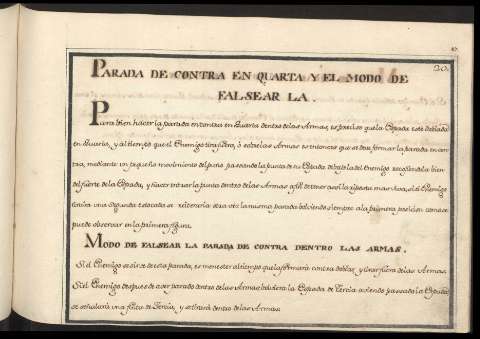 20.
PARADA DE CONTRA EN QUARTA Y EL MODO DE
FALSEAR LA.
Para bien hacer la parada en contra en Quarta dentro de las Armas, es preciso que la Espada esté doblada
en Quarta, y al tiempo que el Enemigo tirase fuera, ó sobre las Armas es entonces que se deve formar la parada en con-
tra, mediante un pequeño movimiento del puño pasando la punta de tu Espada debajo la del Enemigo recogiendola bien
del fuerte de la Espada, y hacer entrar la punta dentro de las Armas a fin de tener a la respuesta mas si el Enemigo
tirára una segunda estocada se reiterará otra véz la misma parada bolviendo siempre a la primera posicion como se
puede observar en la primera figura.
MODO DE FALSEAR LA PARADA DE CONTRA DENTRO LAS ARMAS.
Si el Enemigo se sirve de esta parada, es menester al tiempo que la formará contra doblar y tirar fuera de las Armas
Si el Enemigo despues de aver parado dentro de las Armas bolviera la Espada de Tercia aviendo pasado la Espada
se señalará una finta de Tercia, y se tirará dentro de las Armas.